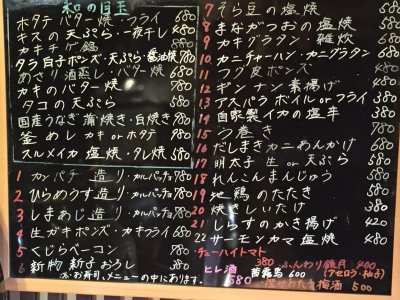 和の目玉
ホタテ バター焼・フライ 680
キスの天ぷら・一夜干し 480
カキチゲ鍋 880
タラ白子ポンズ・天ぷら・醤油焼 780
あさり酒蒸し・バター焼 680
カキのバター焼 780
タコの天ぷら 580
国産うなぎ 蒲焼き・白焼き 780
釜めし カキ or ホタテ 780
スルメイカ 塩焼・タレ焼 580
1 カンパチ 造り・カルパッチョ 780
2 ひらめうす造り・カルパッチョ 780
3 しまあじ造り・カルパッチョ 780
4 生ガキポンズ・カキフライ 680
5 くじらベーコン 780
6 新物 新子おろし 380
お寿司、メニューの中にあります。
7 そら豆の塩焼 580
8 まながつおの塩焼 680
9 カキグラタン・雑炊 680
10 カニチャーハン・カニグラタン 680
11 フグ皮ポンズ 480
12 ギンナン素揚げ 480
13 アスパラ ボイル or フライ 380
14 自家製イカの塩辛 380
15 う巻き 780
16 だしまきカニあんかけ 680
17 明太子 生 or 天ぷら 580
18 れんこんまんじゅう 580
19 地鶏のたたき 580
20 焼きしいたけ 380
21 しらすのかき揚げ 480
22 サーモンカマ塩焼 580
チューハイトマト 380
ヒレ酒 580
ふんわり鏡月 400
(アセロラ・ゆず)
茜霧島 600
梅酒 500